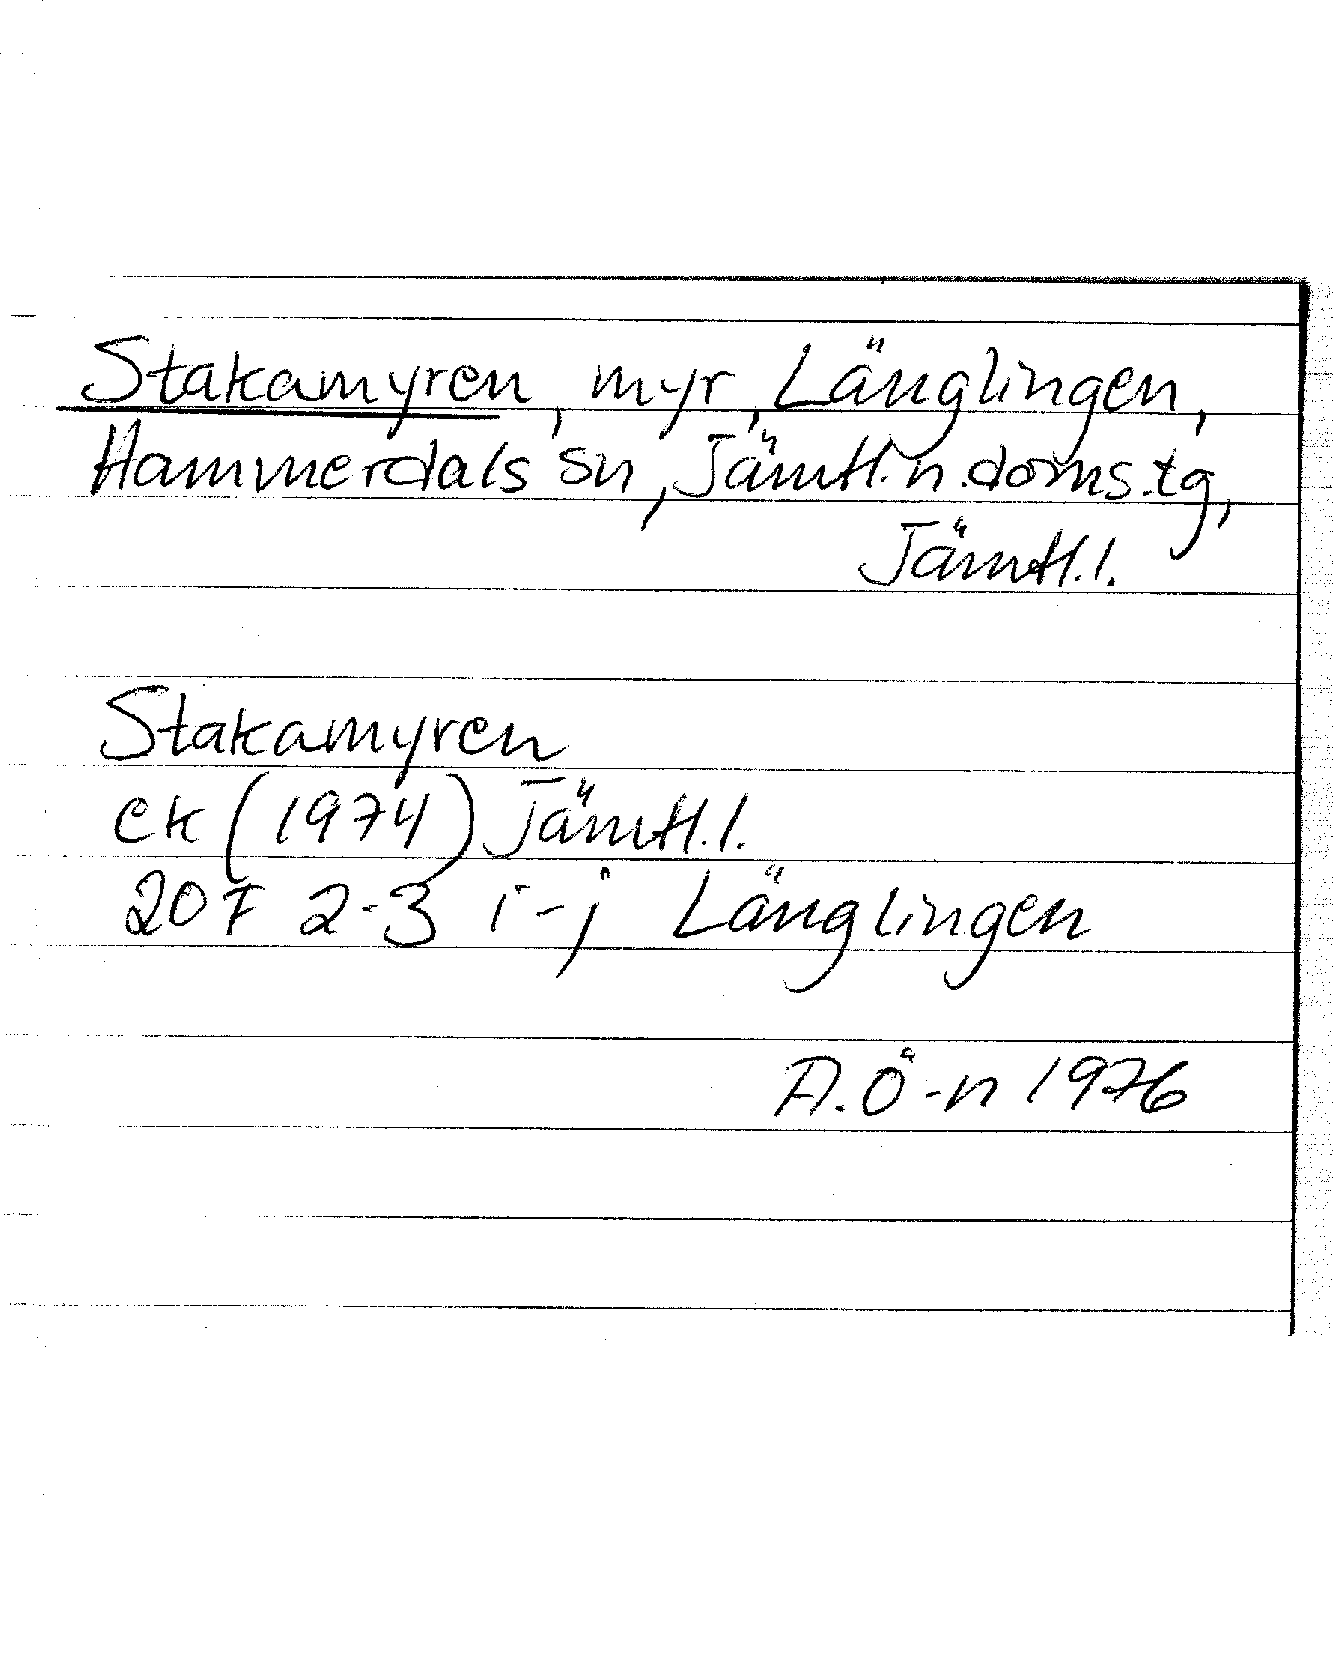 Stakamyren, myr, Länglingen,
Hammerdals sn, Jämtl. n. doms. tg,
Jämtl. l.
Stakamyren
ek (1974) Jämtl. l.
20 F 2-3 i-j Länglingen
A. Ö-n 1976